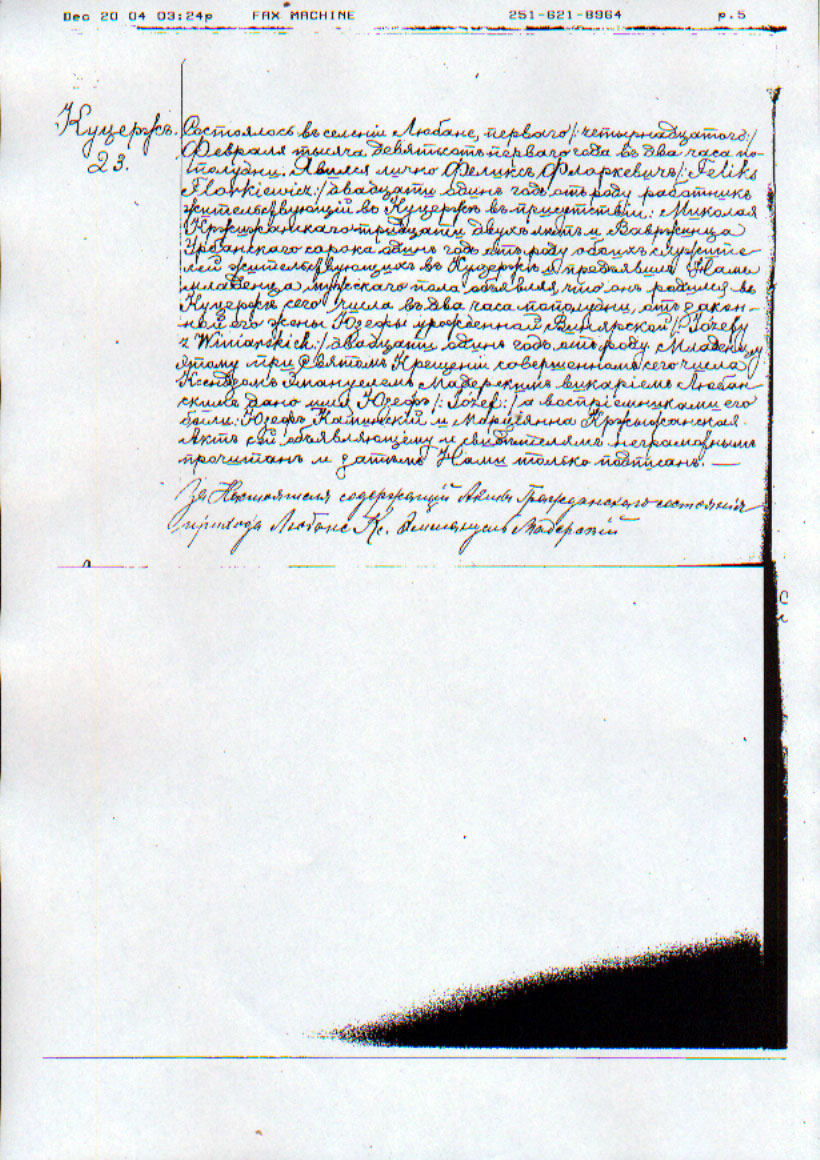 Dec 20 04 03:24p FAX MACHINE 251-621-8964 p.5
Куцержъ.
23.
Состоялось въ селеніи Любане, перваго /: четырнадцатого :/
Февраля тысяча девятьсотъ перваго года въ два часа по-
полудни. Явился лично Феликсъ Флоркевичъ /: Feliks
Florkiewicz :/ двадцати одинъ годъ отъ роду работникъ
жительствующій въ Куцержъ въ присутствіи: Миколая
Кржижанскаго тридцати двухъ лѣтъ и Вавржинца
Урбанскаго сорока одинъ годъ отъ роду обоихъ служите-
лей жительствующихъ въ Куцержъ и предъявилъ Намъ
младенца мужскаго пола объявляя, что онъ родился въ
Куцержъ сего числа въ два часа пополудни, отъ закон-
ной его жены Юзефы урожденной Винярской /: Józefy
z Winiarskich :/ двадцати одинъ годъ отъ роду. Младенцу
этому при Святомъ Крещеніи совершенномъ сего числа
Ксендзомъ Эмануелемъ Мадерскимъ викаріемъ Любан-
скимъ дано имя Юзефъ /: Józef :/ а воспріемниками его
были: Юзефъ Каминскій и Марціянна Кржижанская.
Актъ сей объявляющему и свидѣтелямъ неграмотнымъ
прочитанъ и затѣмъ Нами только подписанъ. —
За Настоятеля содержащій Акты Гражданскаго состоянія
прихода Любане Кс. Эммануель Мадерскій